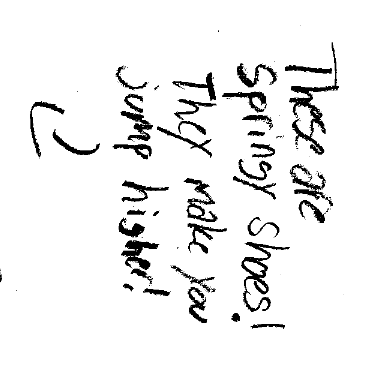 These are
springy shoes!
They make you
jump higher!